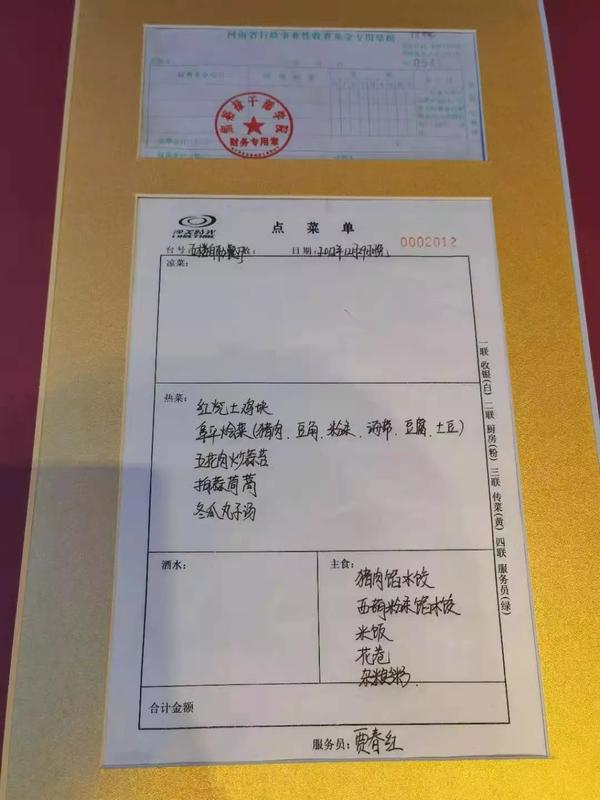 河南省行政事业性收费基金专用票据
焦裕禄干部学院
财务专用章
点菜单
0002012
台号:
日期:2012年12月29日晚
凉菜:
热菜:
红烧土鸡块
阜平烩菜(猪肉、豆角、粉条、海带、豆腐、土豆)
五花肉炒蒜苔
拍蒜茼蒿
冬瓜丸子汤
酒水:
主食:
猪肉馅水饺
西葫粉条馅水饺
米饭
花卷
杂粮粥
合计金额
服务员:贾春红
一联 收银(白) 二联 厨房(粉) 三联 传菜(黄) 四联 服务员(绿)